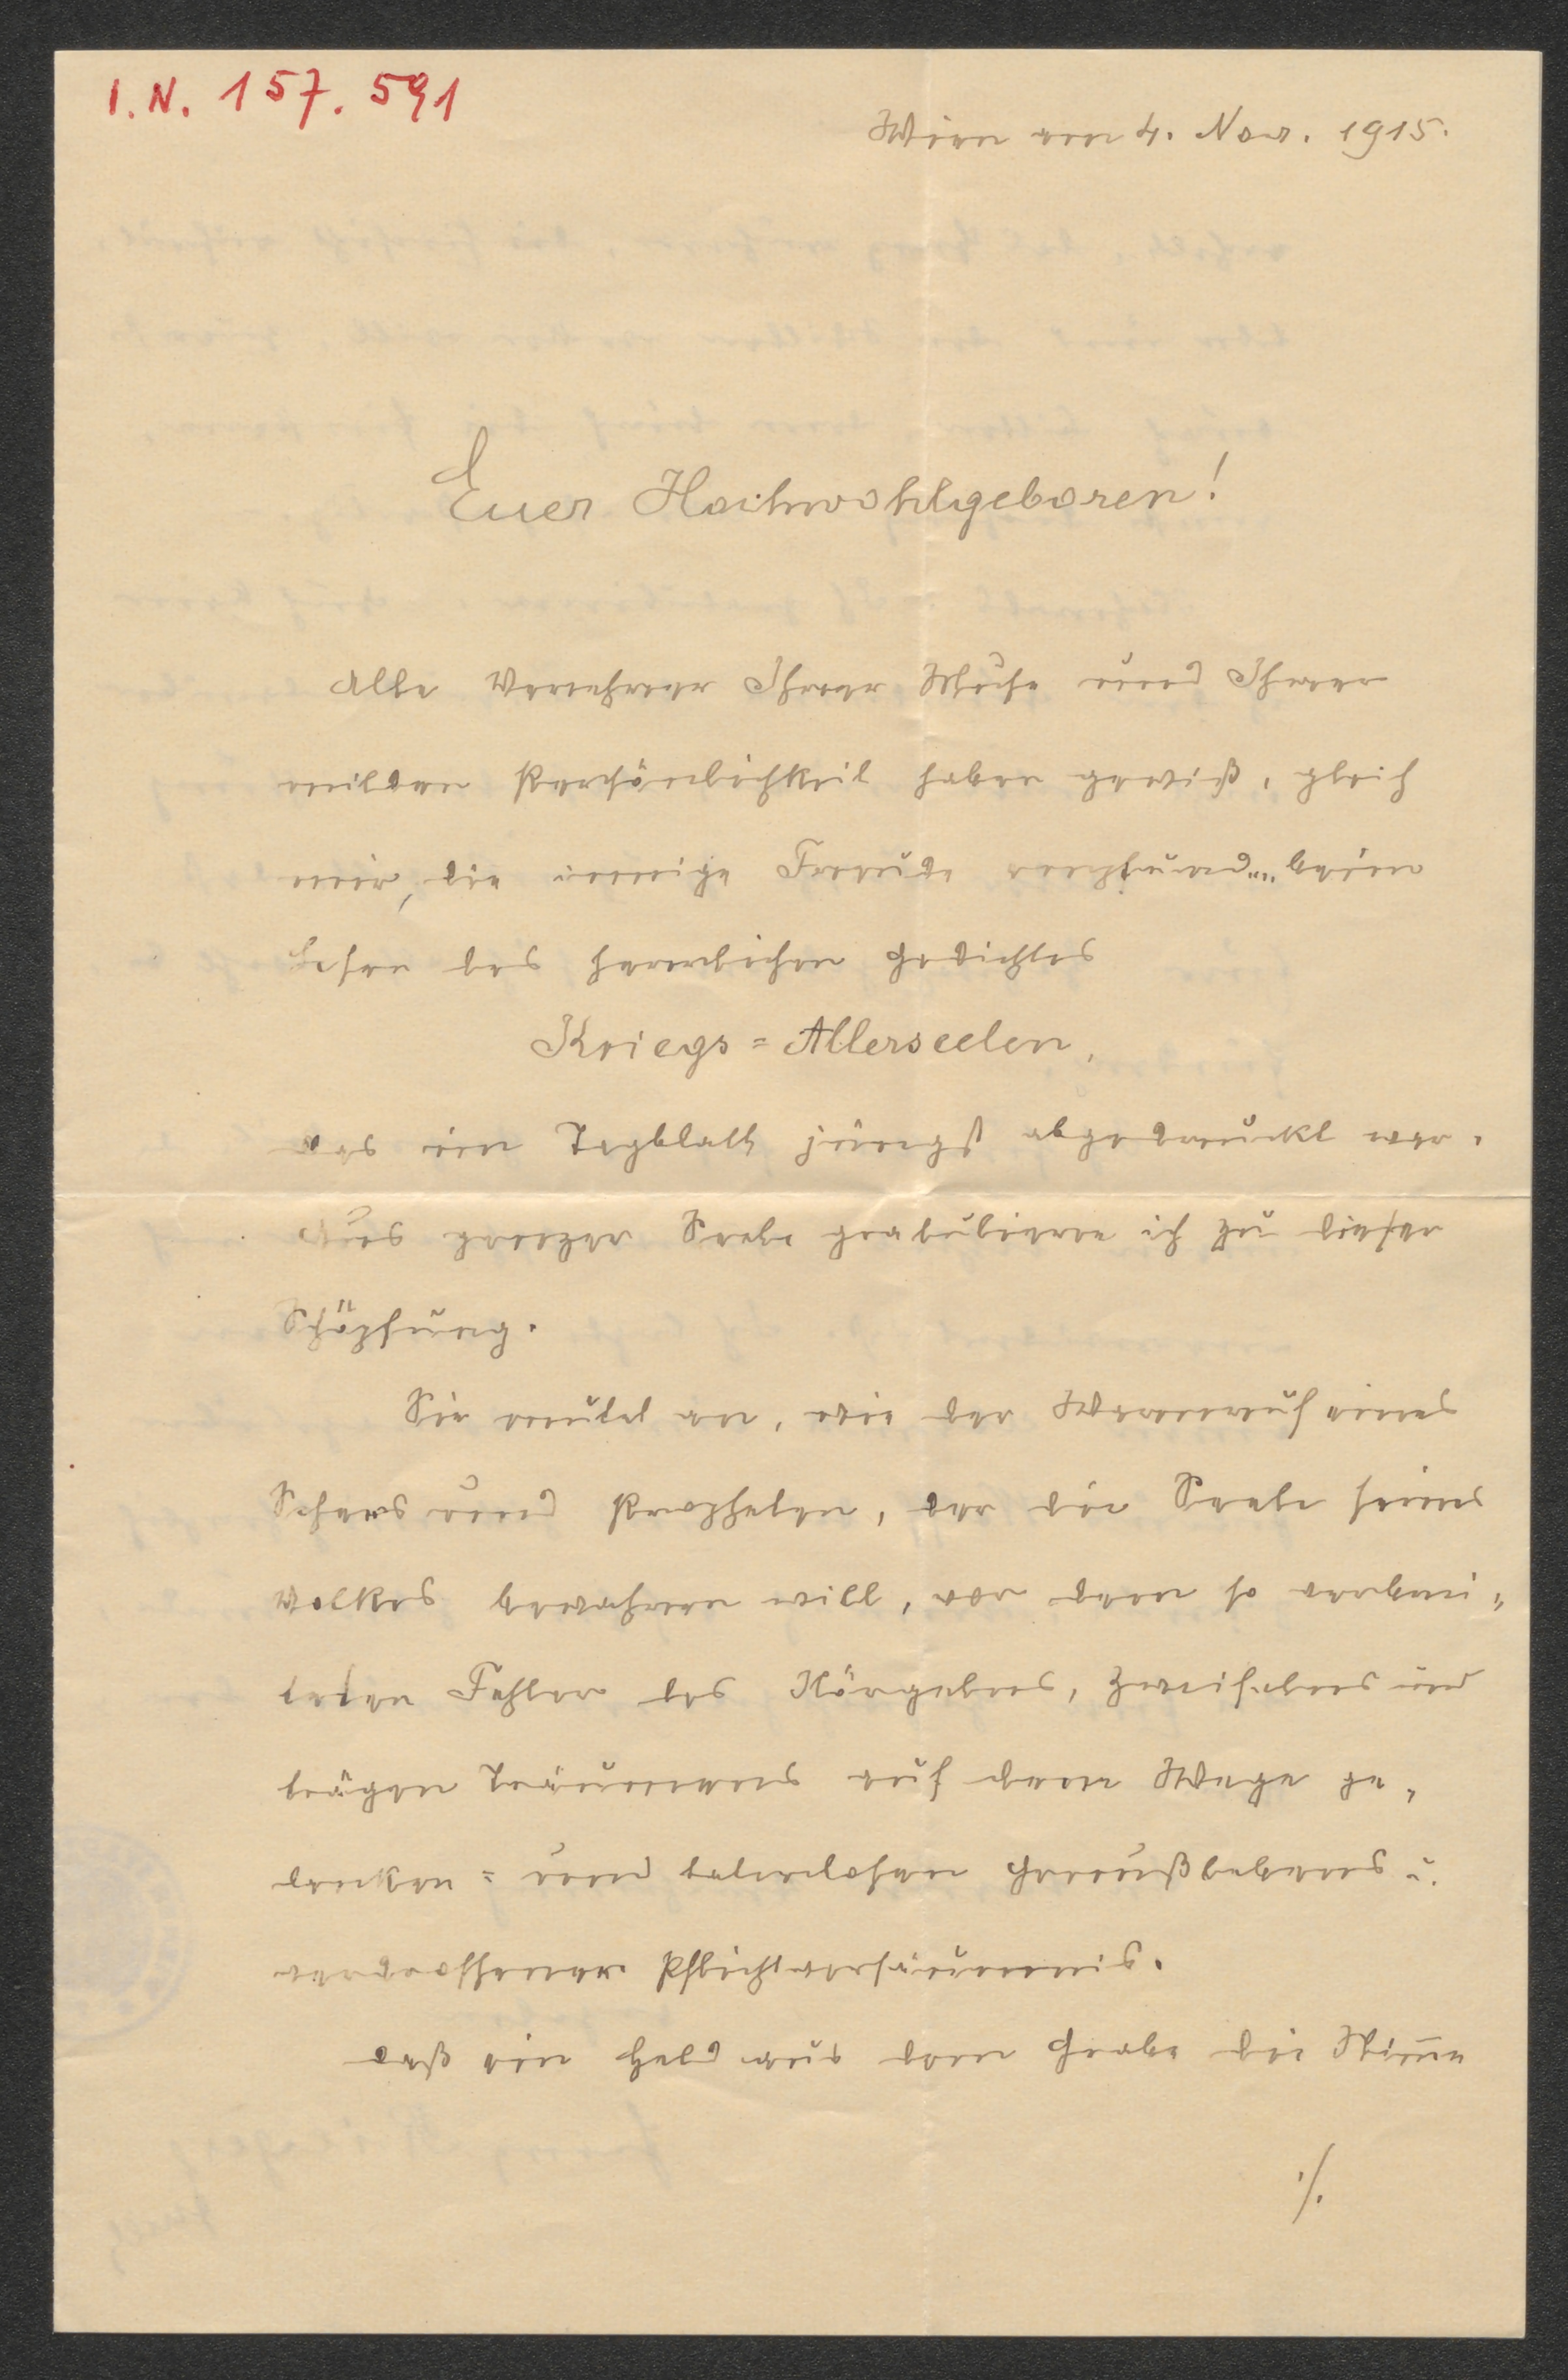 I.N. 157.591
Wien am 4. Nov. 1915.
Euer Hochwohlgeboren!
Alle Verehrer Ihrer Muse und Ihrer
milden Persönlichkeit haben gewiß, gleich
mir, die innige Freude empfund... beim
Lesen des herrlichen Gedichtes
Kriegs=Allerseelen,
das im Tagblatt jüngst abgedruckt war.
Aus ganzer Seele gratuliere ich zu dieser
Schöpfung.
Sie mutet an, wie der Warnruf eines
Sehers und Propheten, der die Seele seines
Volkes bewahren will, vor dem so verbrei-
teten Fehler des Nörgelns, Zweifelns und
trägen Träumens auf dem Wege ge-
danken= und tatenlosen Genußlebens u.
verdrossener Pflichtversäumnis.
Daß ein Held aus dem Grabe die Stimme
./.